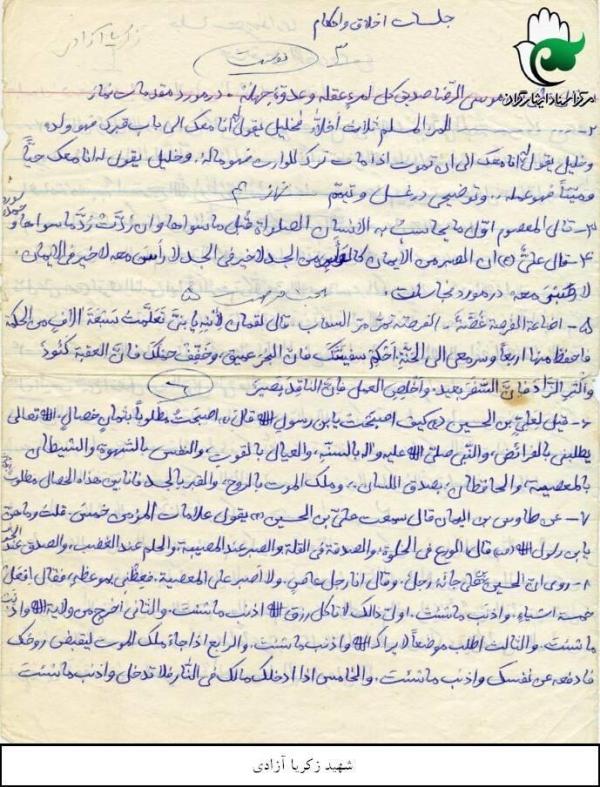 مرکز اسناد ایثارگران
جلسات اخلاق و احکام
زکریا آزادی
دوست
موسی الرضا صدیق کل امرء عقله و عدوه جهله • در مورد مقدمات نماز
۲- المرء المسلم ثلاث اخلاء فخلیل یقول انا معک الی باب قبرک فهو ولده
و خلیل یقول انا معک الی ان تموت اذا مات ترک للوارث فهو ماله. و خلیل یقول له انا معک حیاً
و میتاً فهو عمله .. و توضیحی در غسل و تیمم
۳- قال المعصوم اوّل ما یحاسب به الانسان الصلواة قُبل ما سواها و ان رُدَّت رُدَّ ما سواها
۴- قال علیٌّ (ع) ان الصبر من الایمان کالرأس من الجسد لا خیر فی الجسد لا رأسَ معه لا خیر فی الایمان
لا صبر معه در مورد نجاسات.
۵- اضاعة الفرصة غصّة. الفرصة تمرّ مرّ السحاب. قال لقمان لأبنه یا بنیَّ تعلّمتُ سبعَة الاف من الحکمة
فاحفظ منها اربعاً و سر معی الی الجنّةِ اَحکِم سفینتَک فانَّ البحرَ عمیق، و خفِّف حملک فانَّ العقبة کئود
و اکثر الزّاد فانَّ السّفر بعید. و اخلص العمل فانَّ الناقد بصیر
۶- قیل لعلیِّ بن الحسین (ع) کیف اصبحت یابن رسول الله قال اصبحتُ مطلوباً بثمانِ خصال، الله تعالی
یطلبنی بالفرائض، والنّبی صلی الله علیه و اله بالسنّه، والعیال بالقوت، والنفس بالشهوة، والشیطان
بالمعصیة، والحافظان بصدق اللسان، و ملک الموت بالروح، والقبر بالجسد فانا بین هذه الخصال مطلوب
۷- عن طاووس بن الیمان قال سمعت علی بن الحسین (ع) یقول علامات المؤمن خمس. قلت و ما هن
یابن رسول الله قال الورع فی الخلوة، والصدقة فی القلة والصبر عند المصیبة، والحلم عند الغضب، والصدق عند
۸- روی انّ الحسین بن علی جائه رجل. و قال انا رجل عاصٍ و لا اصبر علی المعصیة، فعظنی بموعظةٍ فقال افعل
خمسة اشیاء، و اذنب ما شئت. اول ذالک لا تاکل رزق الله اذنب ما شئت، والثانی اخرج من ولایة الله و اذنب
ما شئت. والثالث اطلب موضعاً لا یراک الله و اذنب ما شئت، والرابع اذا جاء ملک الموت لیقبض روحک
فادفعه عن نفسک و اذنب ما شئت. والخامس اذا ادخلک مالک فی النّار فلا تدخل و اذنب ما شئت
شهید زکریا آزادی